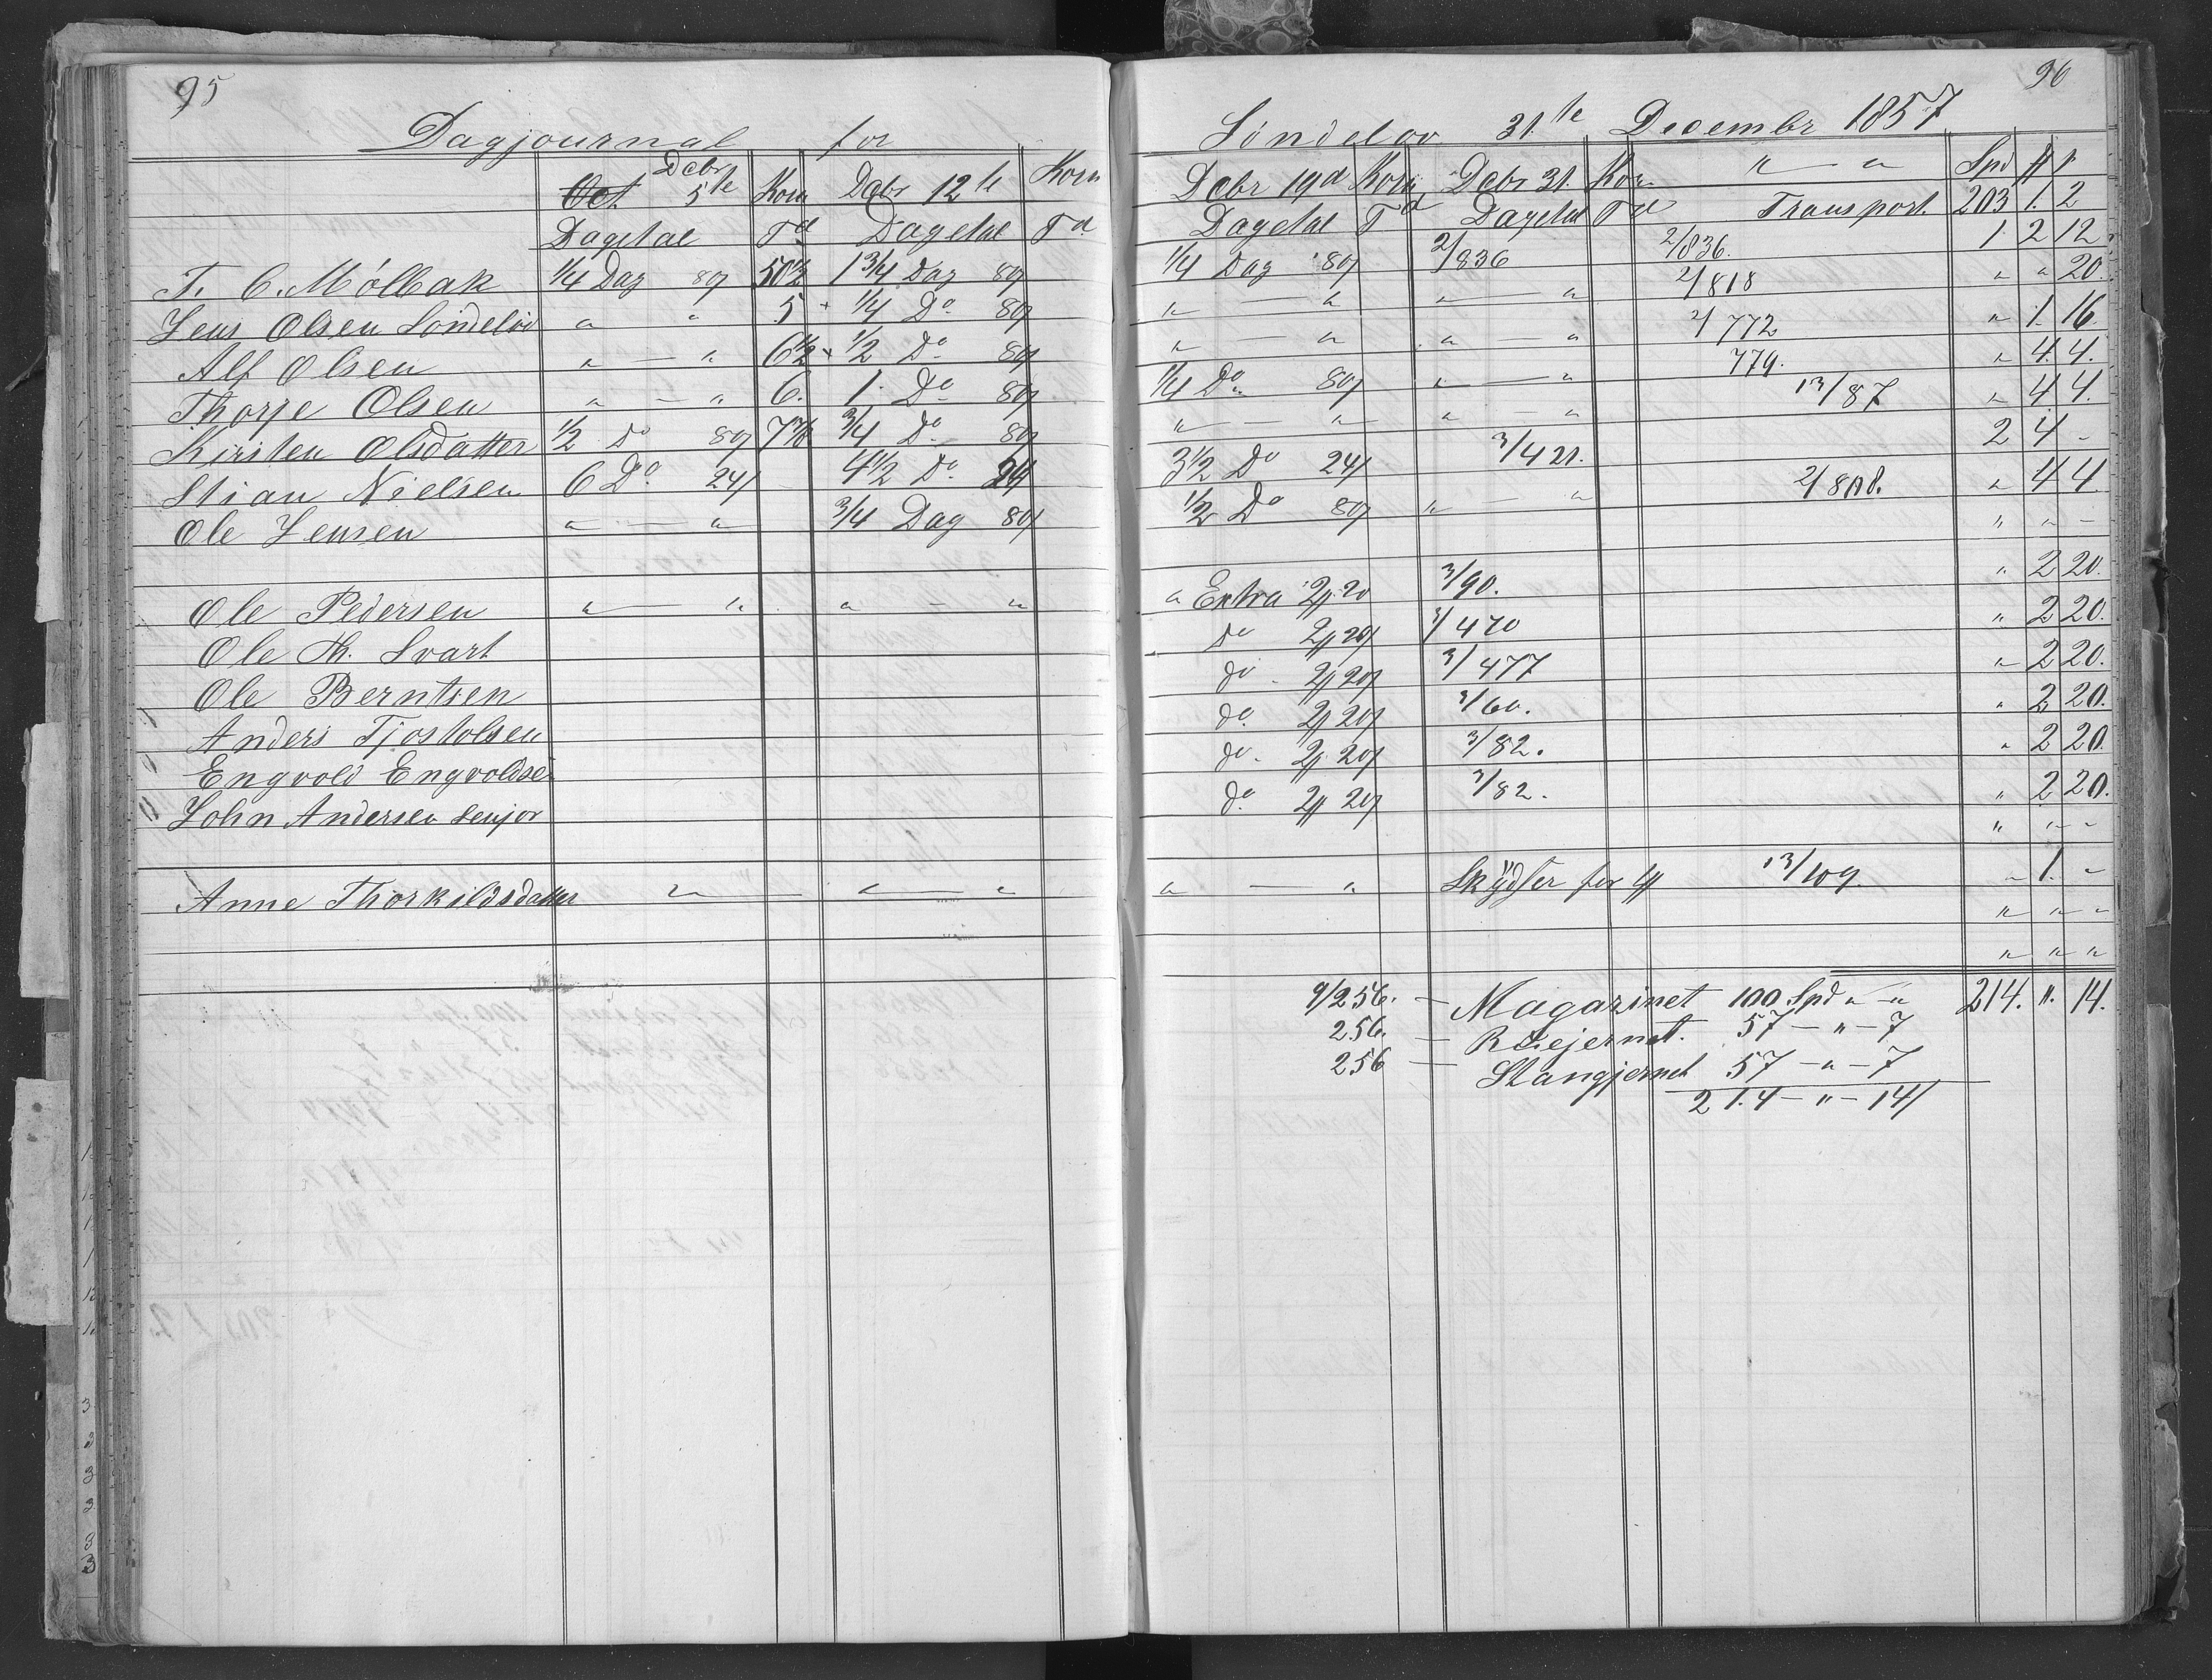 95
Dagjournal for
Oct Debr 5te Korn Debr 12te Korn
Dagetal Td Dagetal Td
T. C. Mölbak 1/4 Dag 80/ 50 1/2 1 3/4 Dag 80/
Jens Olsen Söndelöv " " 5 1/4 Do 80/
Alf Olsen " — " 6 1/2 1/2 Do 80/
Thorje Olsen " — " 6. 1 Do 80/
Kirsten Olsdatter 1/2 Do 80/ 3/4 Do 80/
Stian Nielsen 6 Do 24/ 4 1/2 Do 24/
Ole Jensen " — " 3/4 Dag 80/
Ole Pedersen " — " " — "
Ole Th. Svart
Ole Berntsen
Anders Tjostolsen
Engvold Engvoldsen
John Andersen senjor
Anne Thorkildsdatter " — " — "
96
Söndelöv 31.te Decembr 1857
Debr 19d Korn Debr 31. Kor " — "
Spd
Dagetal Td Dagetal Td Transport. 203 1. 2
1/4 Dag 80/ 2/836 2/836. 1 2 12
" — " " — " 2/818 " " 20.
" — " " — " 2/772 " 1. 16
1/4 Do 80/ " — " 779. " 4. 4.
" — " " — " 13/87 " 4 4.
3 1/2 Do 24/ 3/421. 2 4 -
1/2 Do 80/ " — " 2/808. " 4 4.
" " -
" Extra 2 20 3/90. " 2 20.
Do 2 20/ 3/470 " 2 20.
do 2 20/ 3/477 " 2 20.
do. 2 20/ 3/60. " 2 20.
do. 2 20/ 3/82. " 2 20.
do. 2 20/ 3/82. " 2 20.
" " -
" — " Skydser for 13/109. " 1. -
" " "
" " "
9/256. — Magazinet 100 Spd " — " 214. " 14.
256. — Ruejernet. 57 — " — 7
256 — Stangjernet 57 — " — 7
214 — " — 14/